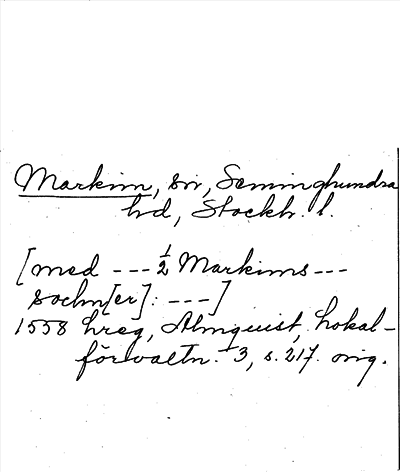 Markim, sn, Seminghundra
hd, Stockh. l.
[med --- 1/2 Markims ---
sochn[er]: ---]
1558 hreg, Almquist, Lokal-
förvaltn. 3, s. 217. orig.